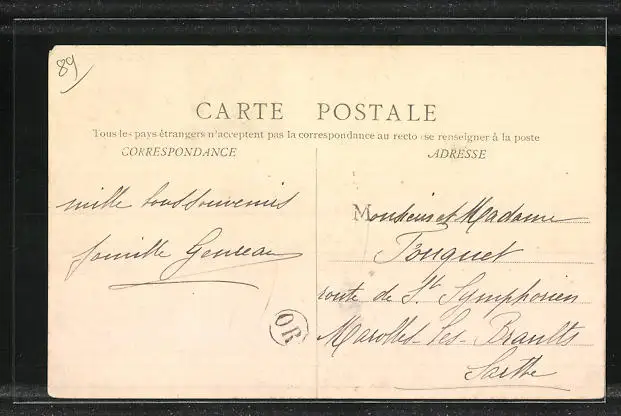 89
CARTE POSTALE
Tous les pays étrangers n'acceptent pas la correspondance au recto (se renseigner à la poste
CORRESPONDANCE
ADRESSE
mille bons souvenirs
famille Geneau
Monsieur et Madame
Fouquet
route de St Symphorien
Marolles-les-Braults
Sarthe
OR